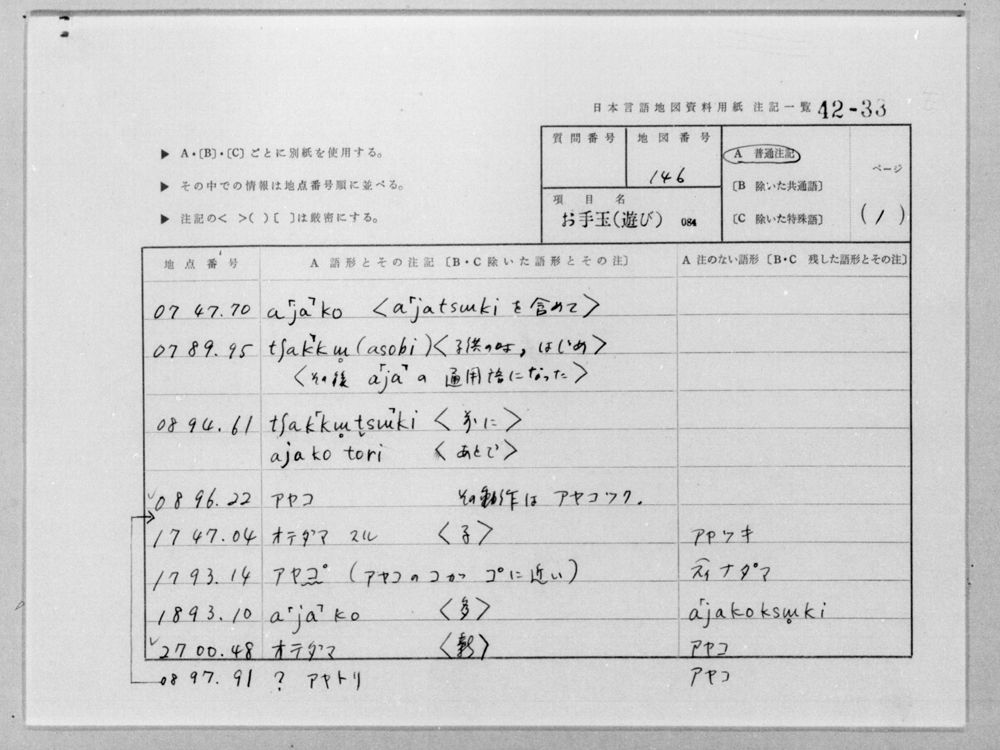 日本言語地図資料用紙 注記一覧 42-33
▶ A・〔B〕・〔C〕ごとに別紙を使用する。
▶ その中での情報は地点番号順に並べる。
▶ 注記の< >( )[ ]は厳密にする。
質問番号
地図番号
146
項目名
お手玉(遊び) 084
A 普通注記
〔B 除いた共通語〕
〔C 除いた特殊語〕
ページ
(1)
地点番号 A 語形とその注記〔B・C除いた語形とその注〕 A 注のない語形〔B・C 残した語形とその注〕
07 47.70 a｢ja｣ko <a｢jatsɯki を含めて>
07 89.95 tʃak｢kɯ̥ (asobi) <子供の時, はじめ>
<その後 a｢ja｣の通用語になった>
08 94.61 tʃak｢kɯ̥tsɯ｣ki <前に>
ajako tori <あとで>
08 96.22 アヤコ その動作は アヤコツク.
17 47.04 オテダマ スル <子> アヤツキ
17 93.14 アヤコ゚ (アヤコのコがゴに近い) ティナダマ
18 93.10 a｢ja｣ko <多> a｢jakoksɯ̥ki
27 00.48 オテダマ <新> アヤコ
08 97.91 ? アヤトリ アヤコ